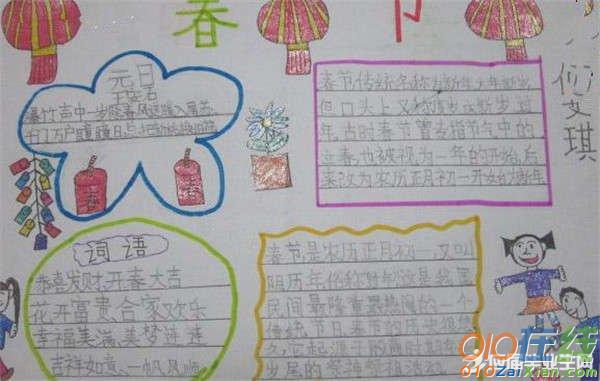 春节
元日
王安石
爆竹声中一岁除春风送暖入屠苏
千门万户曈曈日总把新桃换旧符
春节传统名称为新年大年新岁
但口头上又称度岁庆新岁过
年,古时春节曾专指节气中的
立春,也被视为一年的开始,后
来改为农历正月初一开始为新年
词语
恭喜发财,开春大吉
花开富贵合家欢乐
幸福美满,美梦连连
吉祥如意,一帆风顺
春节是农历正月初一,又叫
阴历年俗称过年这是我国
民间最隆重最热闹的一个
传统节日春节的历史很
琪
910在线
910ZaiXian.com
应届毕业生网